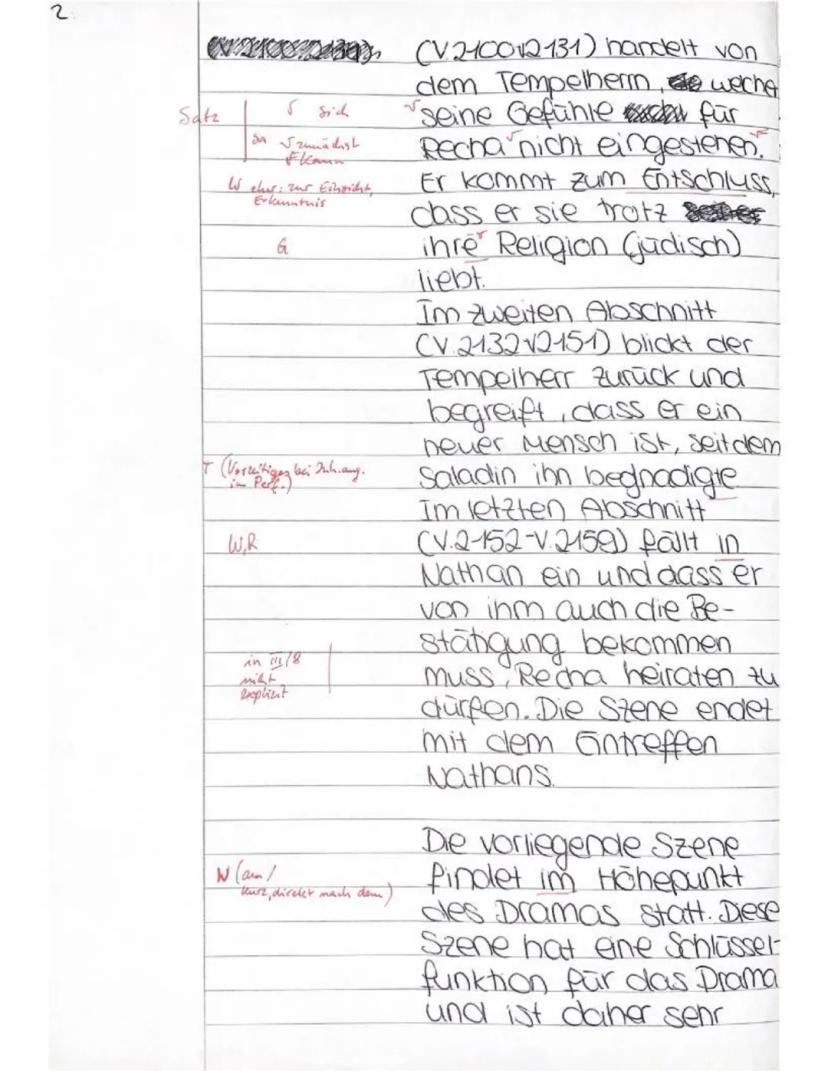 2
(V.2100-2131) handelt von
dem Tempelherrn, welcher
Satz √ sich
seine Gefühle für
√ zunächst
Recha nicht eingestehen.
W eher: zur Einsicht,
Erkenntnis
Er kommt zum Entschluss,
dass er sie trotz
G
ihre Religion (jüdisch)
liebt.
Im zweiten Abschnitt
(V.2132-2151) blickt der
Tempelherr zurück und
begreift, dass er ein
neuer Mensch ist, seitdem
T (Vorzeitiges bei
im Perf.)
Saladin ihn begnadigte
Im letzten Abschnitt
W,R
(V.2152-V.2159) fällt in
Nathan ein und dass er
von ihm auch die Be-
stätigung bekommen
in III/8
nicht
explizit
muss, Recha heiraten zu
dürfen. Die Szene endet
mit dem Eintreffen
Nathans.
Die vorliegende Szene
W (am /
kurz, direkt nach dem)
findet im Höhepunkt
des Dramas statt. Diese
Szene hat eine Schlüssel-
funktion für das Drama
und ist daher sehr